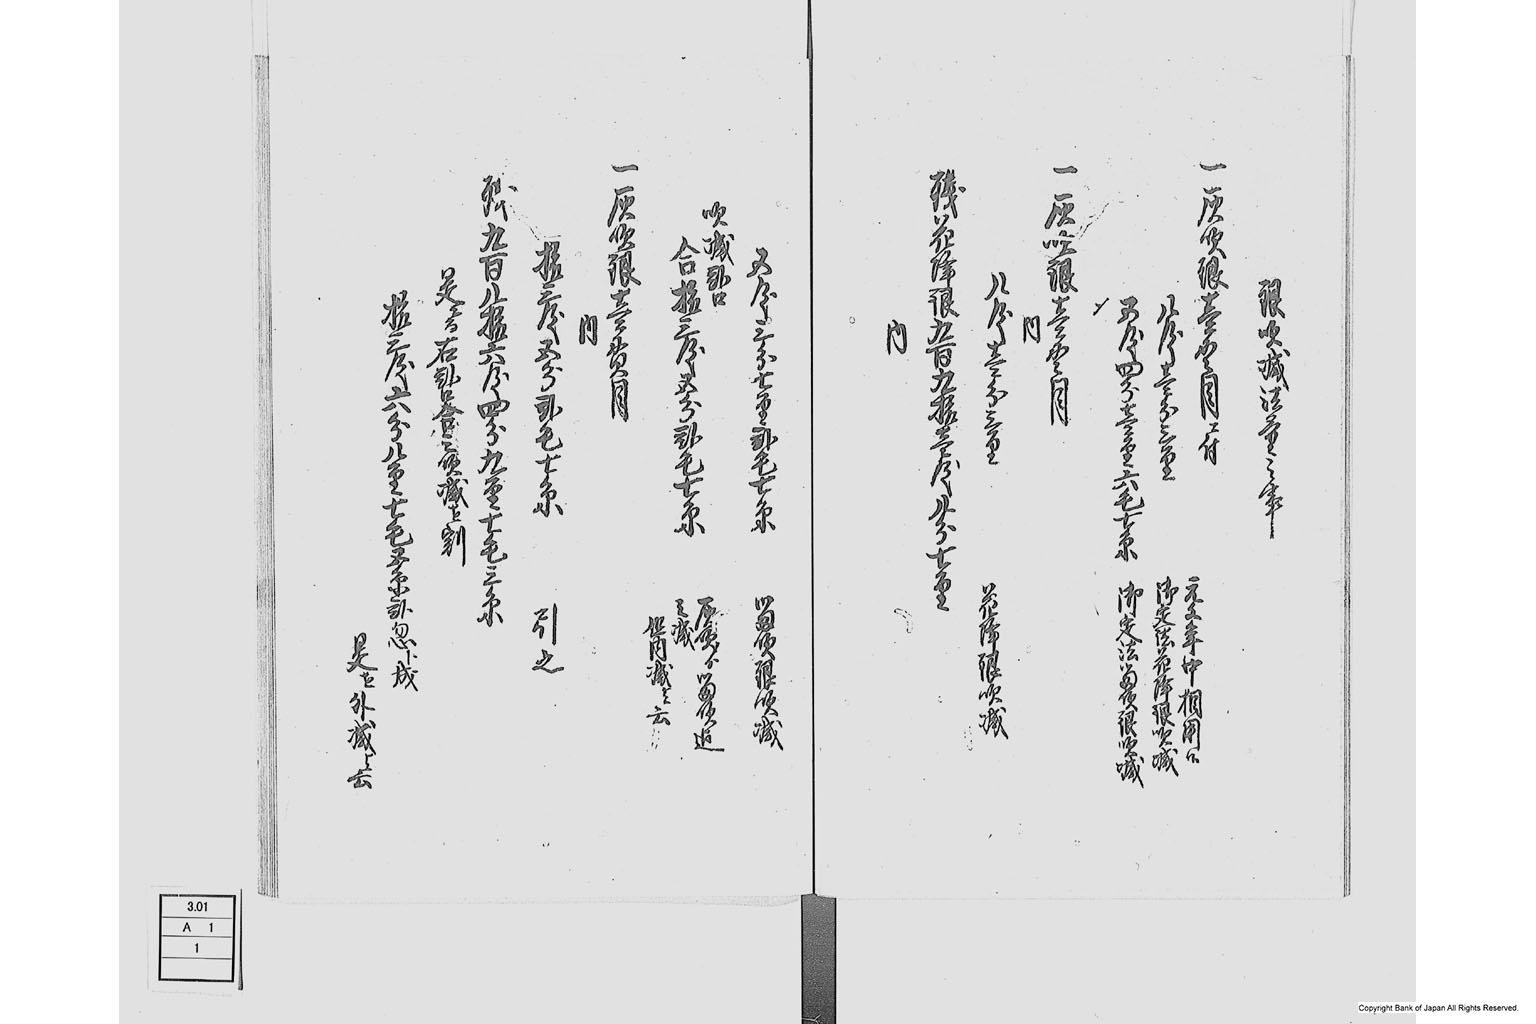 銀吹減法量之事
一灰吹銀壱貫目ニ付
八匁壱分三厘
五匁四分壱厘六毛七糸
元文年中相用候
御定法花降銀吹減
御定法留吹銀吹減
一灰吹銀壱貫目
内
八匁壱分三厘
花降銀吹減
残花降銀九百九拾壱匁八分七厘
内
五匁三分七厘弐毛七糸
留吹銀吹減
吹減弐口
合拾三匁五分弐毛七糸
灰吹ゟ留吹迄
之減
但内減と云
一灰吹銀壱貫目
内
拾三匁五分弐毛七糸
引之
残九百八拾六匁四分九厘七毛三糸
是を右弐口合之吹減を割
拾三匁六分八厘七毛五糸弐忽下成
是を外減と云
3.01
A 1
1
Copyright Bank of Japan All Rights Reserved.